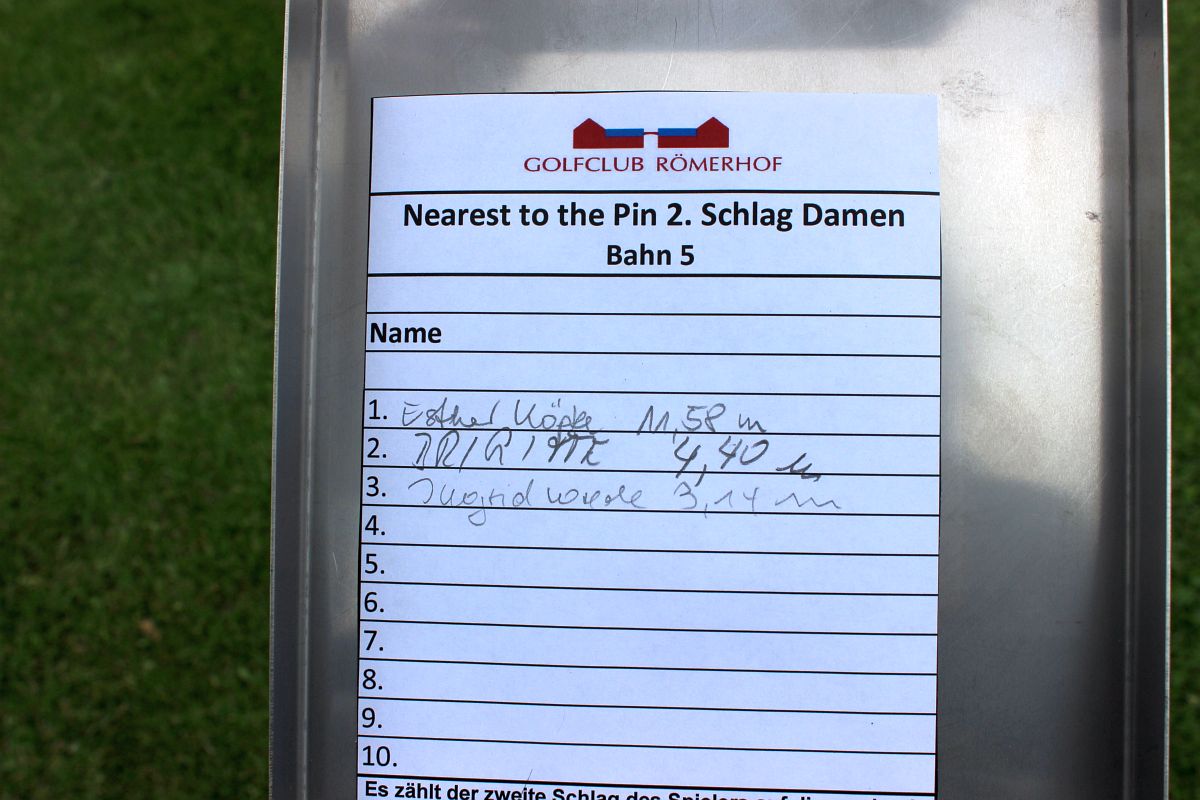 GOLFCLUB RÖMERHOF
Nearest to the Pin 2. Schlag Damen
Bahn 5
Name
1. Esther Köpke 11,58 m
2. BRIGITTE 4,40 m
3. Ingrid 3,14 m
4.
5.
6.
7.
8.
9.
10.
Es zählt der zweite Schlag des Spielers